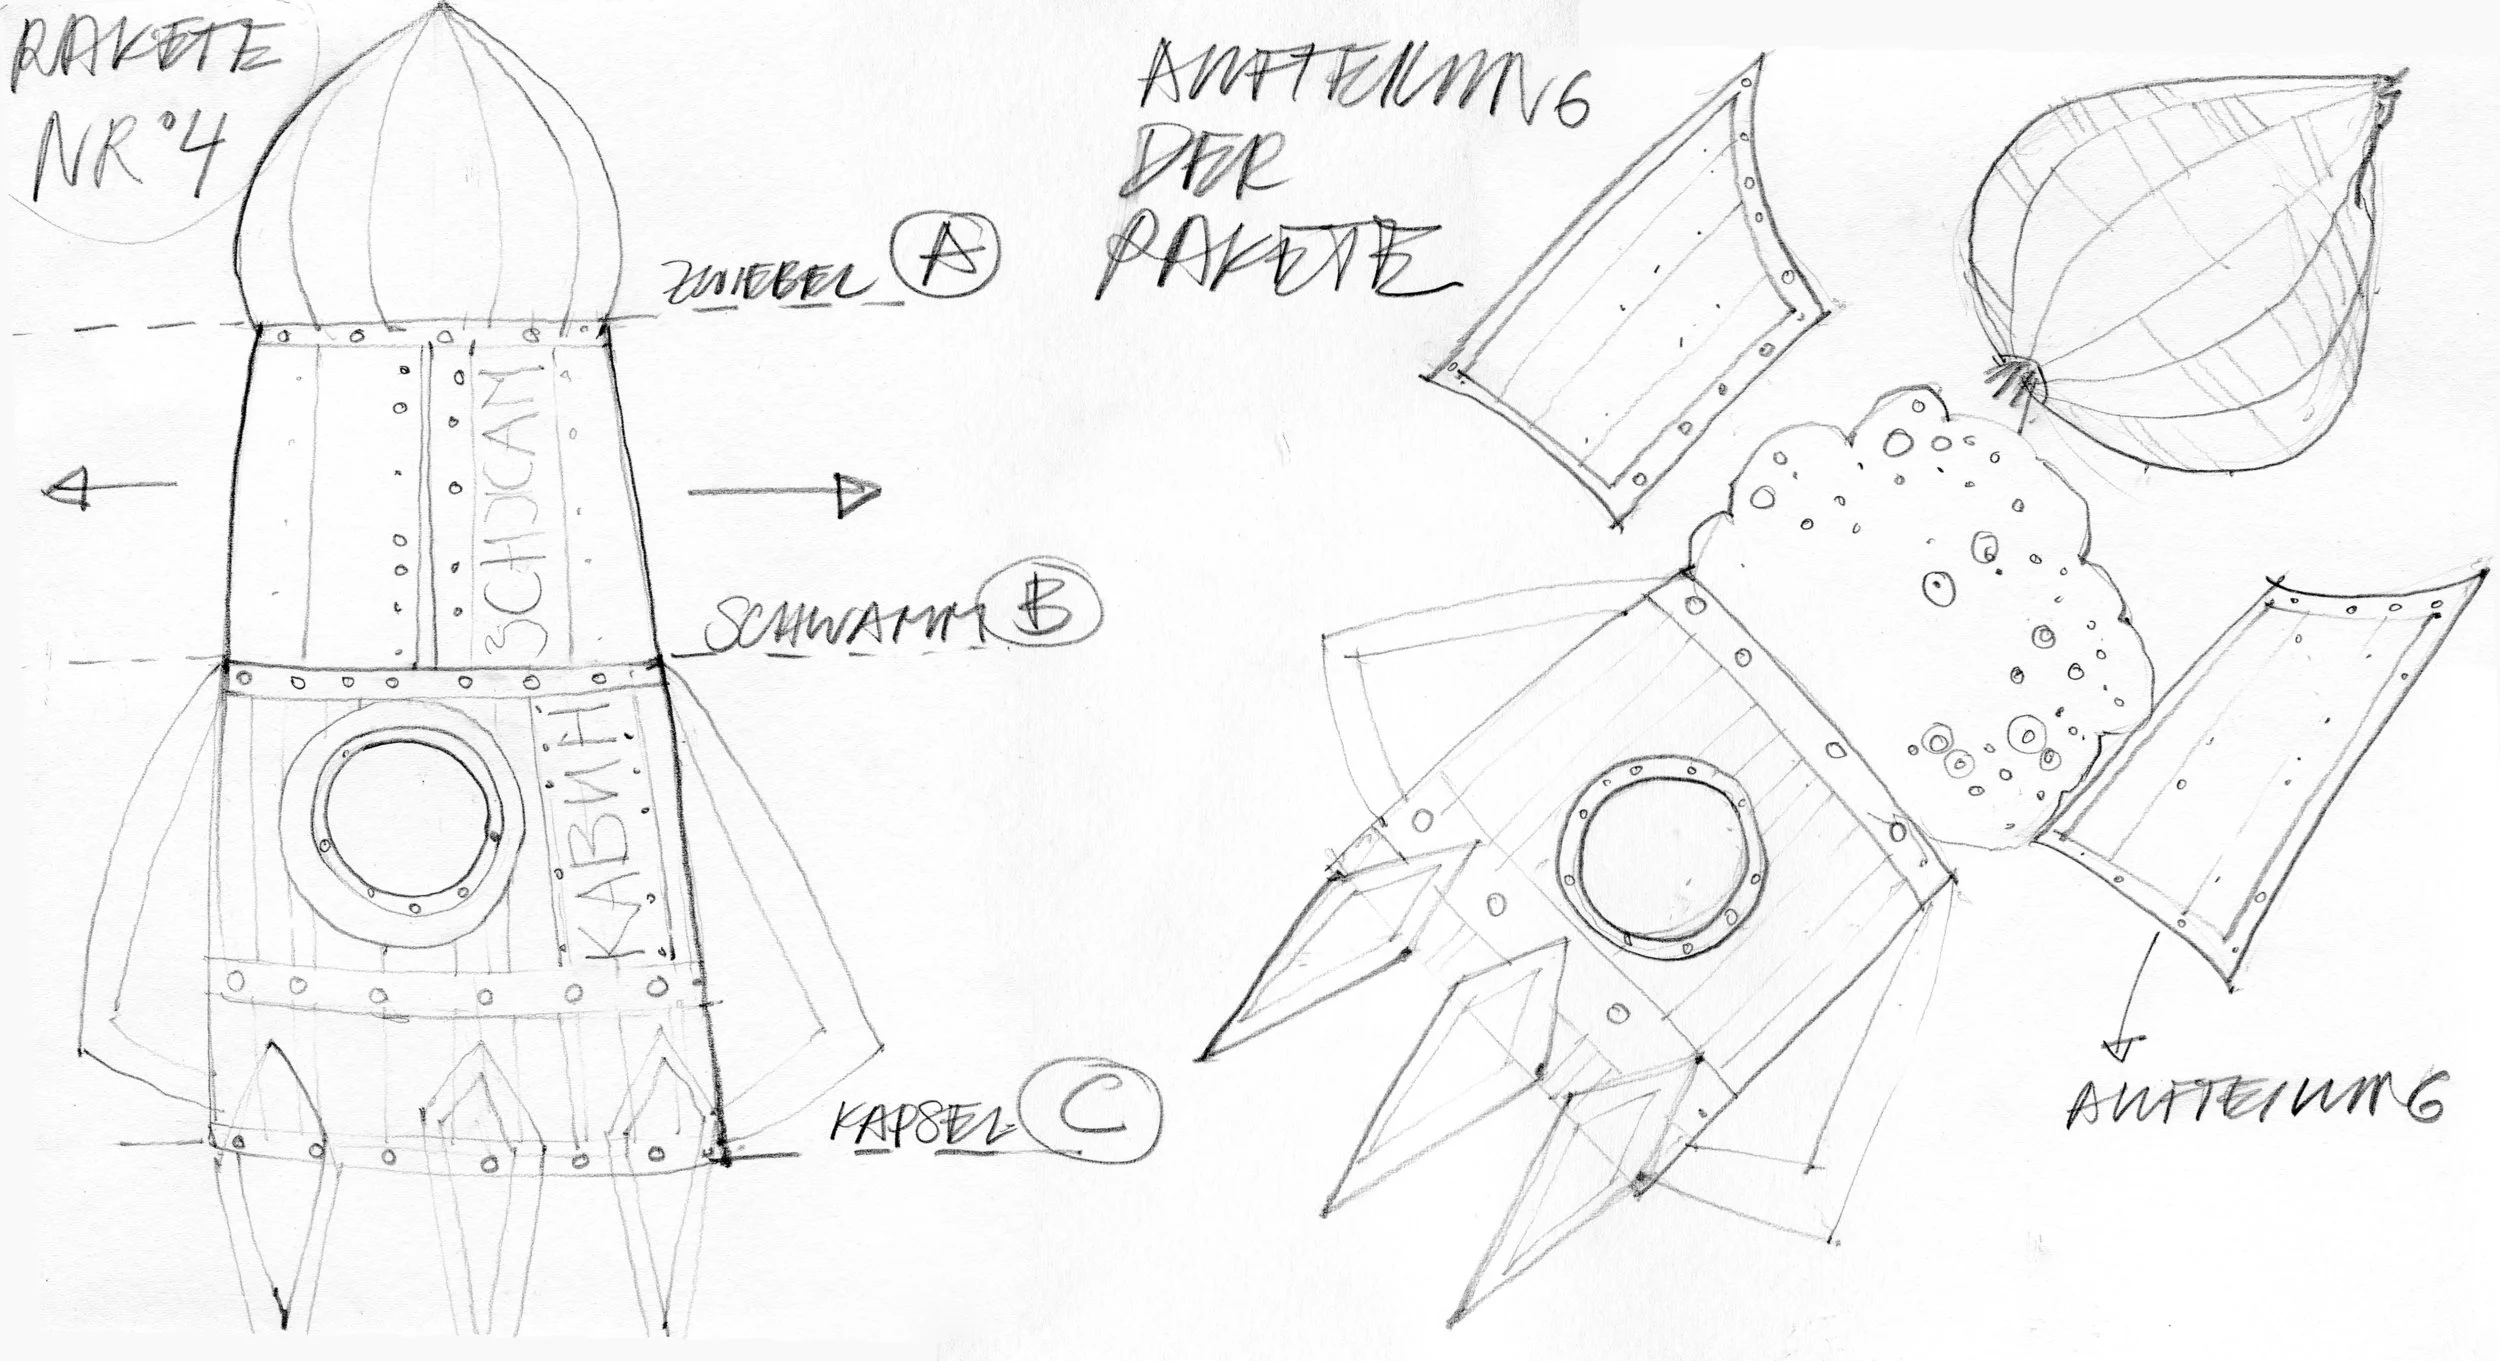 RAKETE
NR°4
ZWIEBEL A
SCHWAMM B
КАВИН
KAPSEL C
AUFTEILUNG
DER
RAKETE
AUFTEILUNG